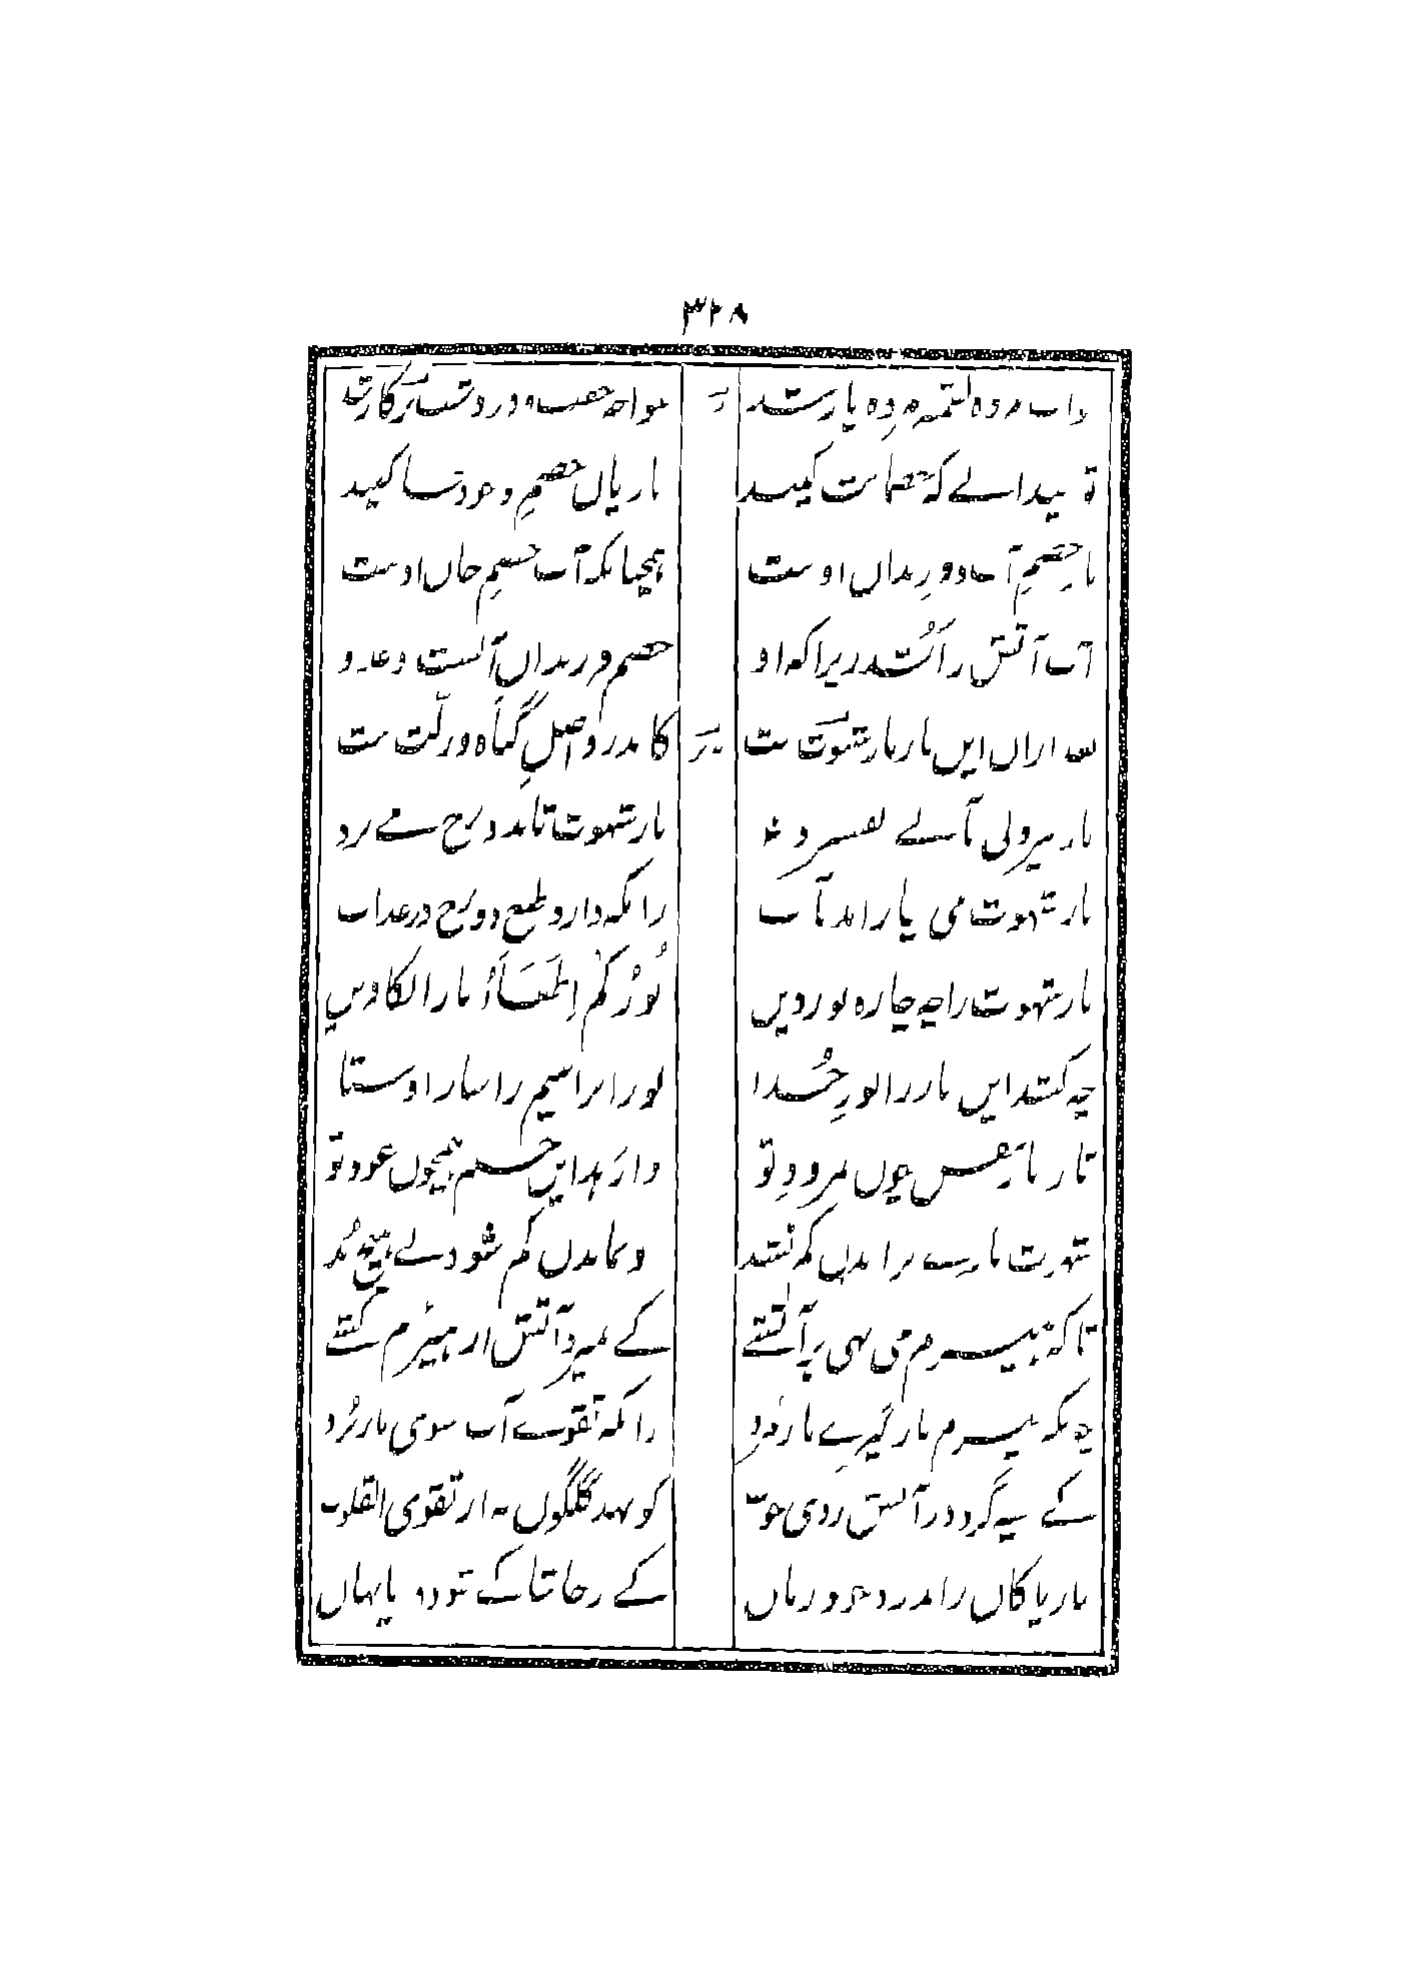 ۳۲۸
لقمه مرده یار شد
ناریان خصمِ وجود خاکیند
نار خصمِ آب و فرزندان اوست
همچنانکه آب خصمِ جان اوست
آب آتش را کُشد زیرا که او
خصم فرزندان آبست و عدو
بعد ازان این نار نار شهوتست
کاندرو اصلِ گناه و زلّت ست
نار بیرونی بآبے بفسرد
نار شهوت تا بدوزخ مے برد
نار شهوت می نیارامد بآب
زانکه دارد طبع دوزخ در عذاب
نار شهوت را چه چاره نور دین
نُورُکُمْ اِطْفَاءُ نار الکافرین
چه کشد این نار را نورِ خُدا
نور ابراهیم را ساز اوستا
تا ز نارِ نفس چون نمرودِ تو
وارَهد این جسم همچون عود تو
شهوت نارے براندن کم نشد
بماندن کم شود بے هیچ بُد
تا که هیزم می نهی بر آتشے
کے بمیرد آتش از هیزم کشے
چونکه هیزم باز گیرے نار مُرد
زانکه تقوے آب سوی نار بُرد
کے سیه گردد ز آتش روی خوب
کو نهد گلگونه از تقوی القلوب
نار پاکان را ندارد خود زیان
کے ز خاشاکے شود دریا نهان